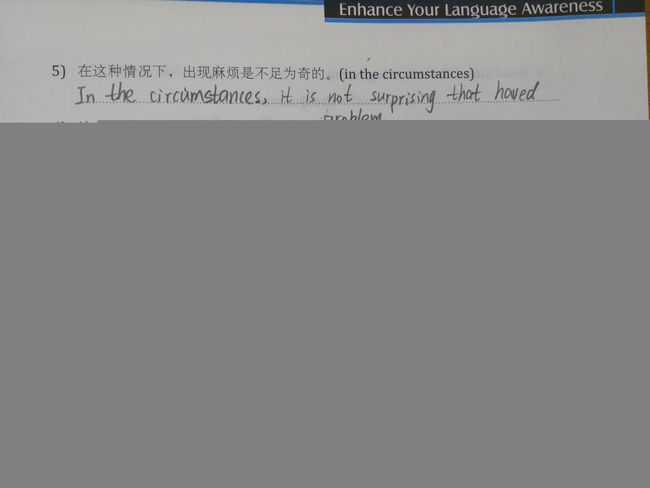 Enhance Your Language Awareness
5) 在这种情况下，出现麻烦是不足为奇的。(in the circumstances)
In the circumstances, it is not surprising that haved
problem